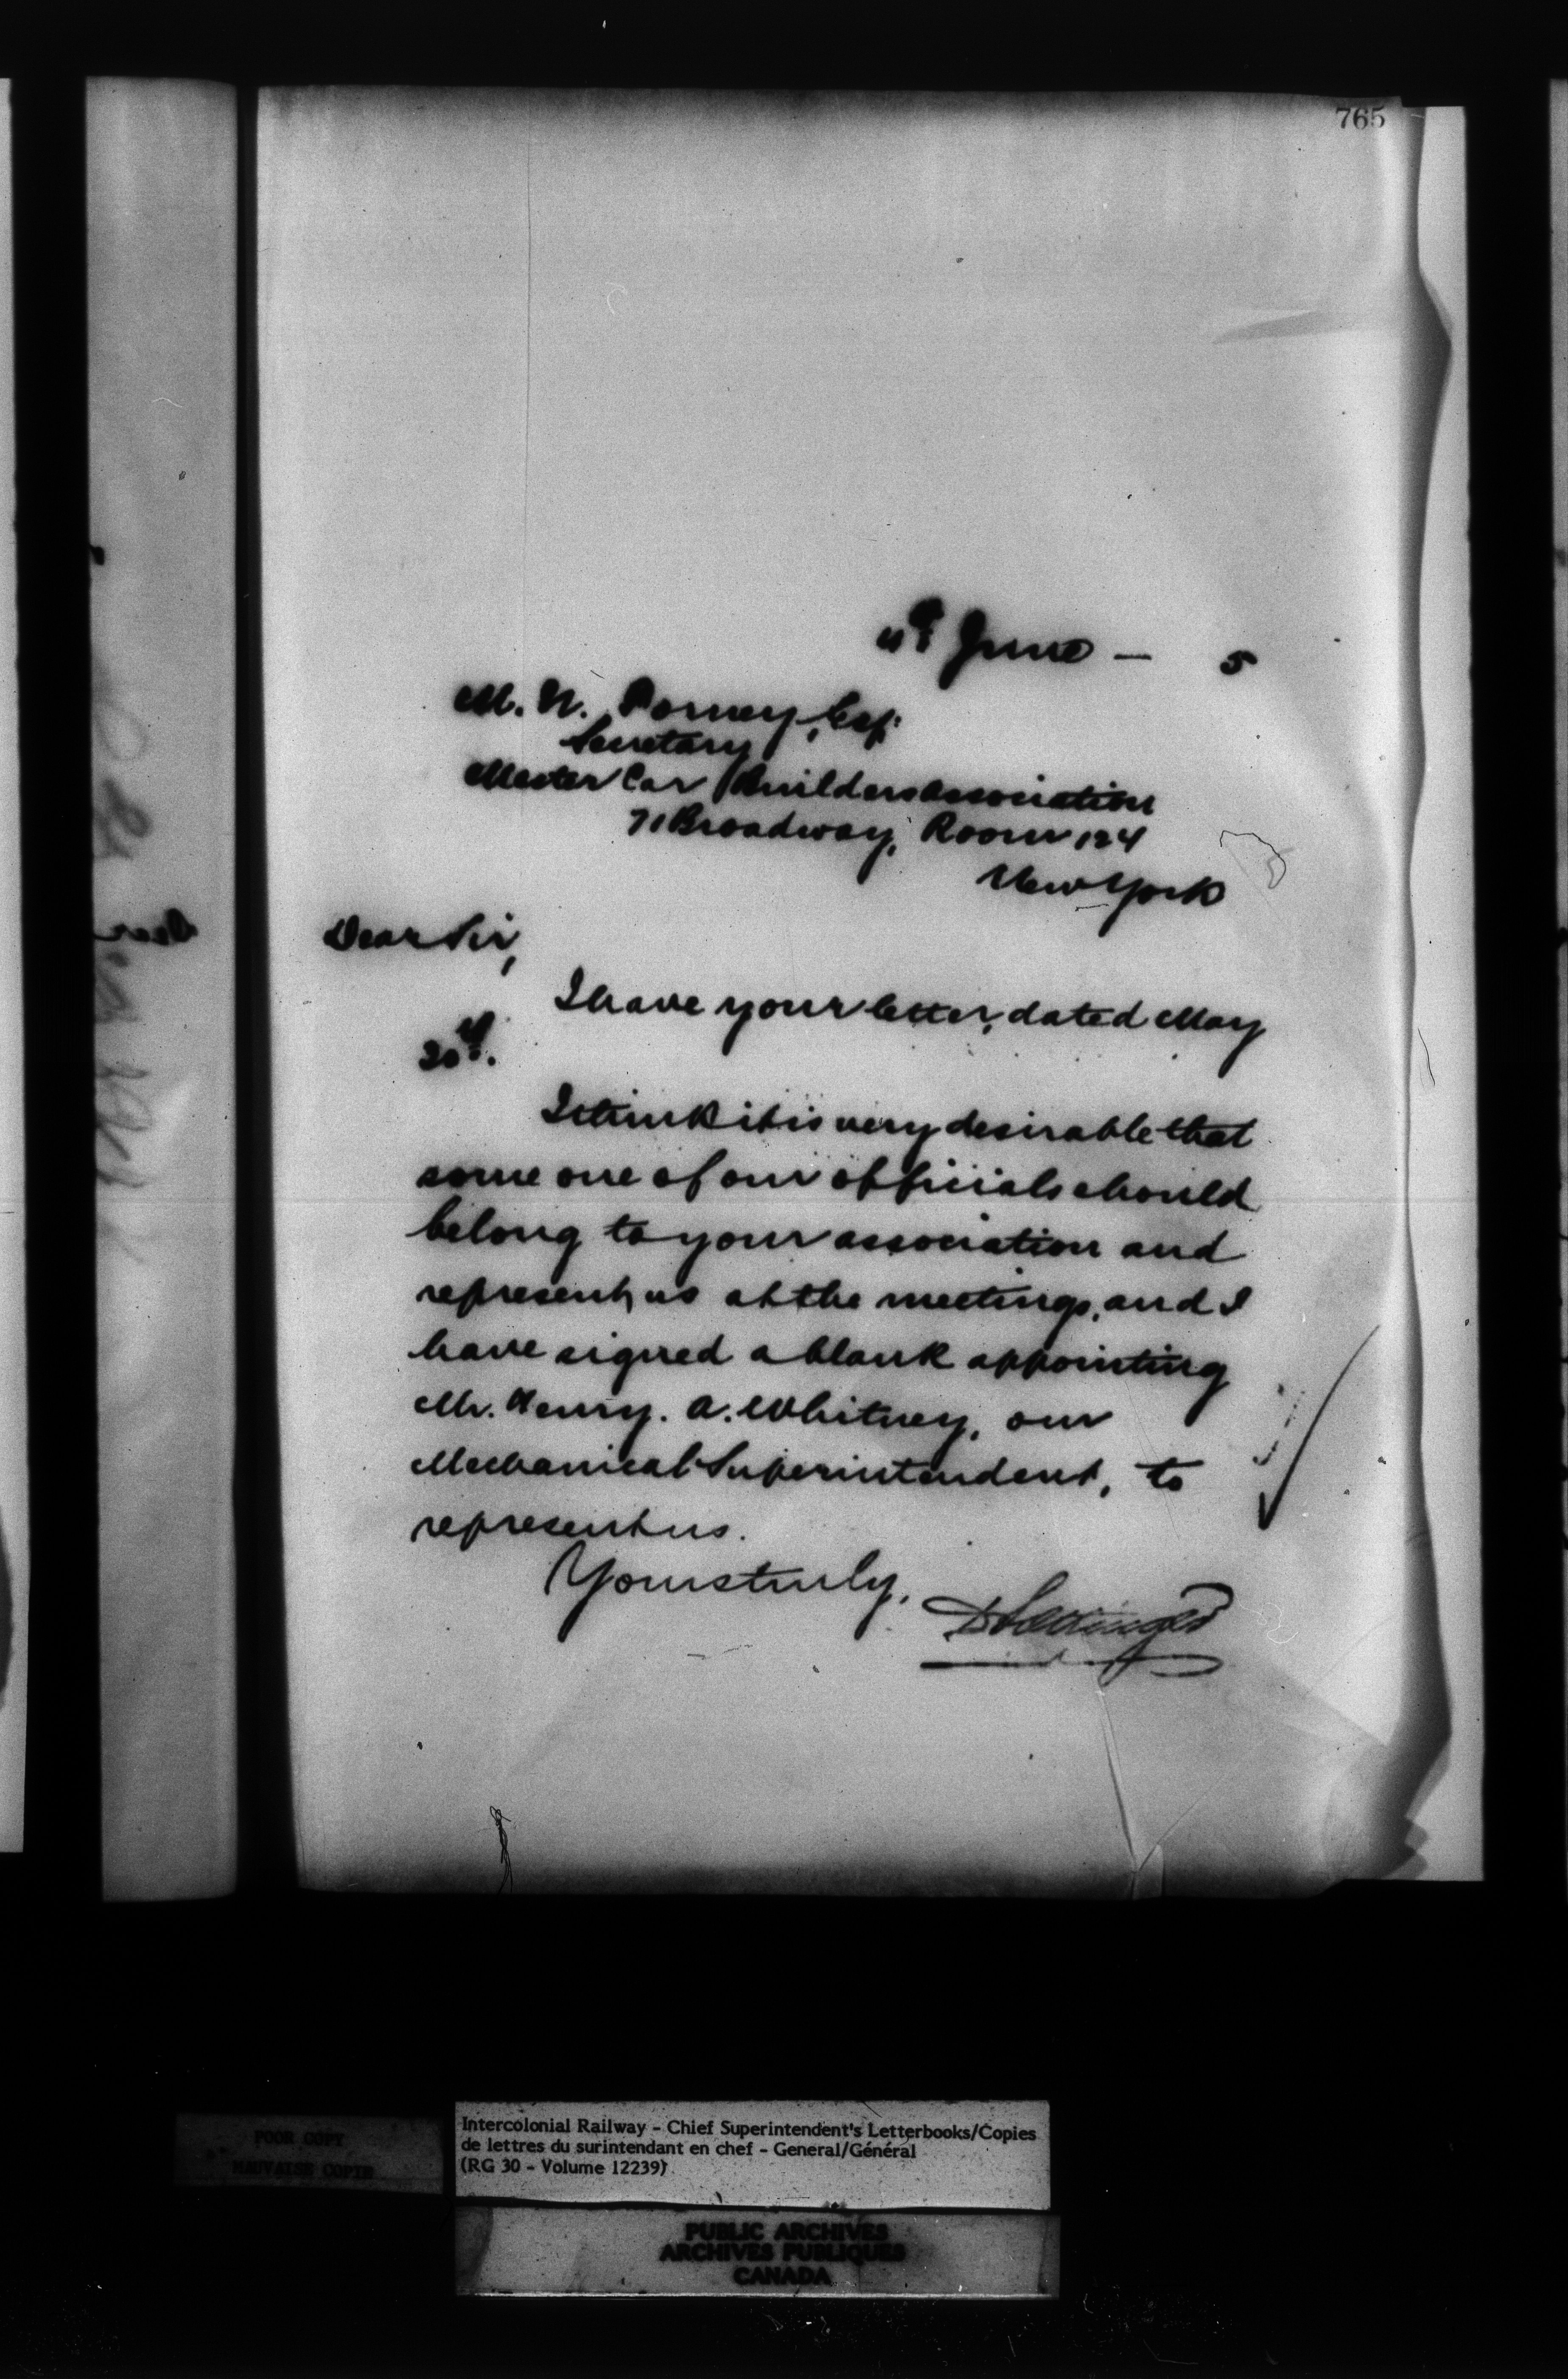 765
4th June — 5
M. N. Forney, Esq.
Secretary
Master Car Builders Association
71 Broadway, Room 124
New York
Dear Sir,
I have your letter, dated May
30th.
I think it is very desirable that
some one of our officials should
belong to your association and
represent us at the meetings, and I
have signed a blank appointing
Mr. Henry. A. Whitney, our
Mechanical Superintendent, to
represent us.
Yours truly,
D Pottinger
POOR COPY
MAUVAISE COPIE
Intercolonial Railway - Chief Superintendent's Letterbooks/Copies
de lettres du surintendant en chef - General/Général
(RG 30 - Volume 12239)
PUBLIC ARCHIVES
ARCHIVES PUBLIQUES
CANADA